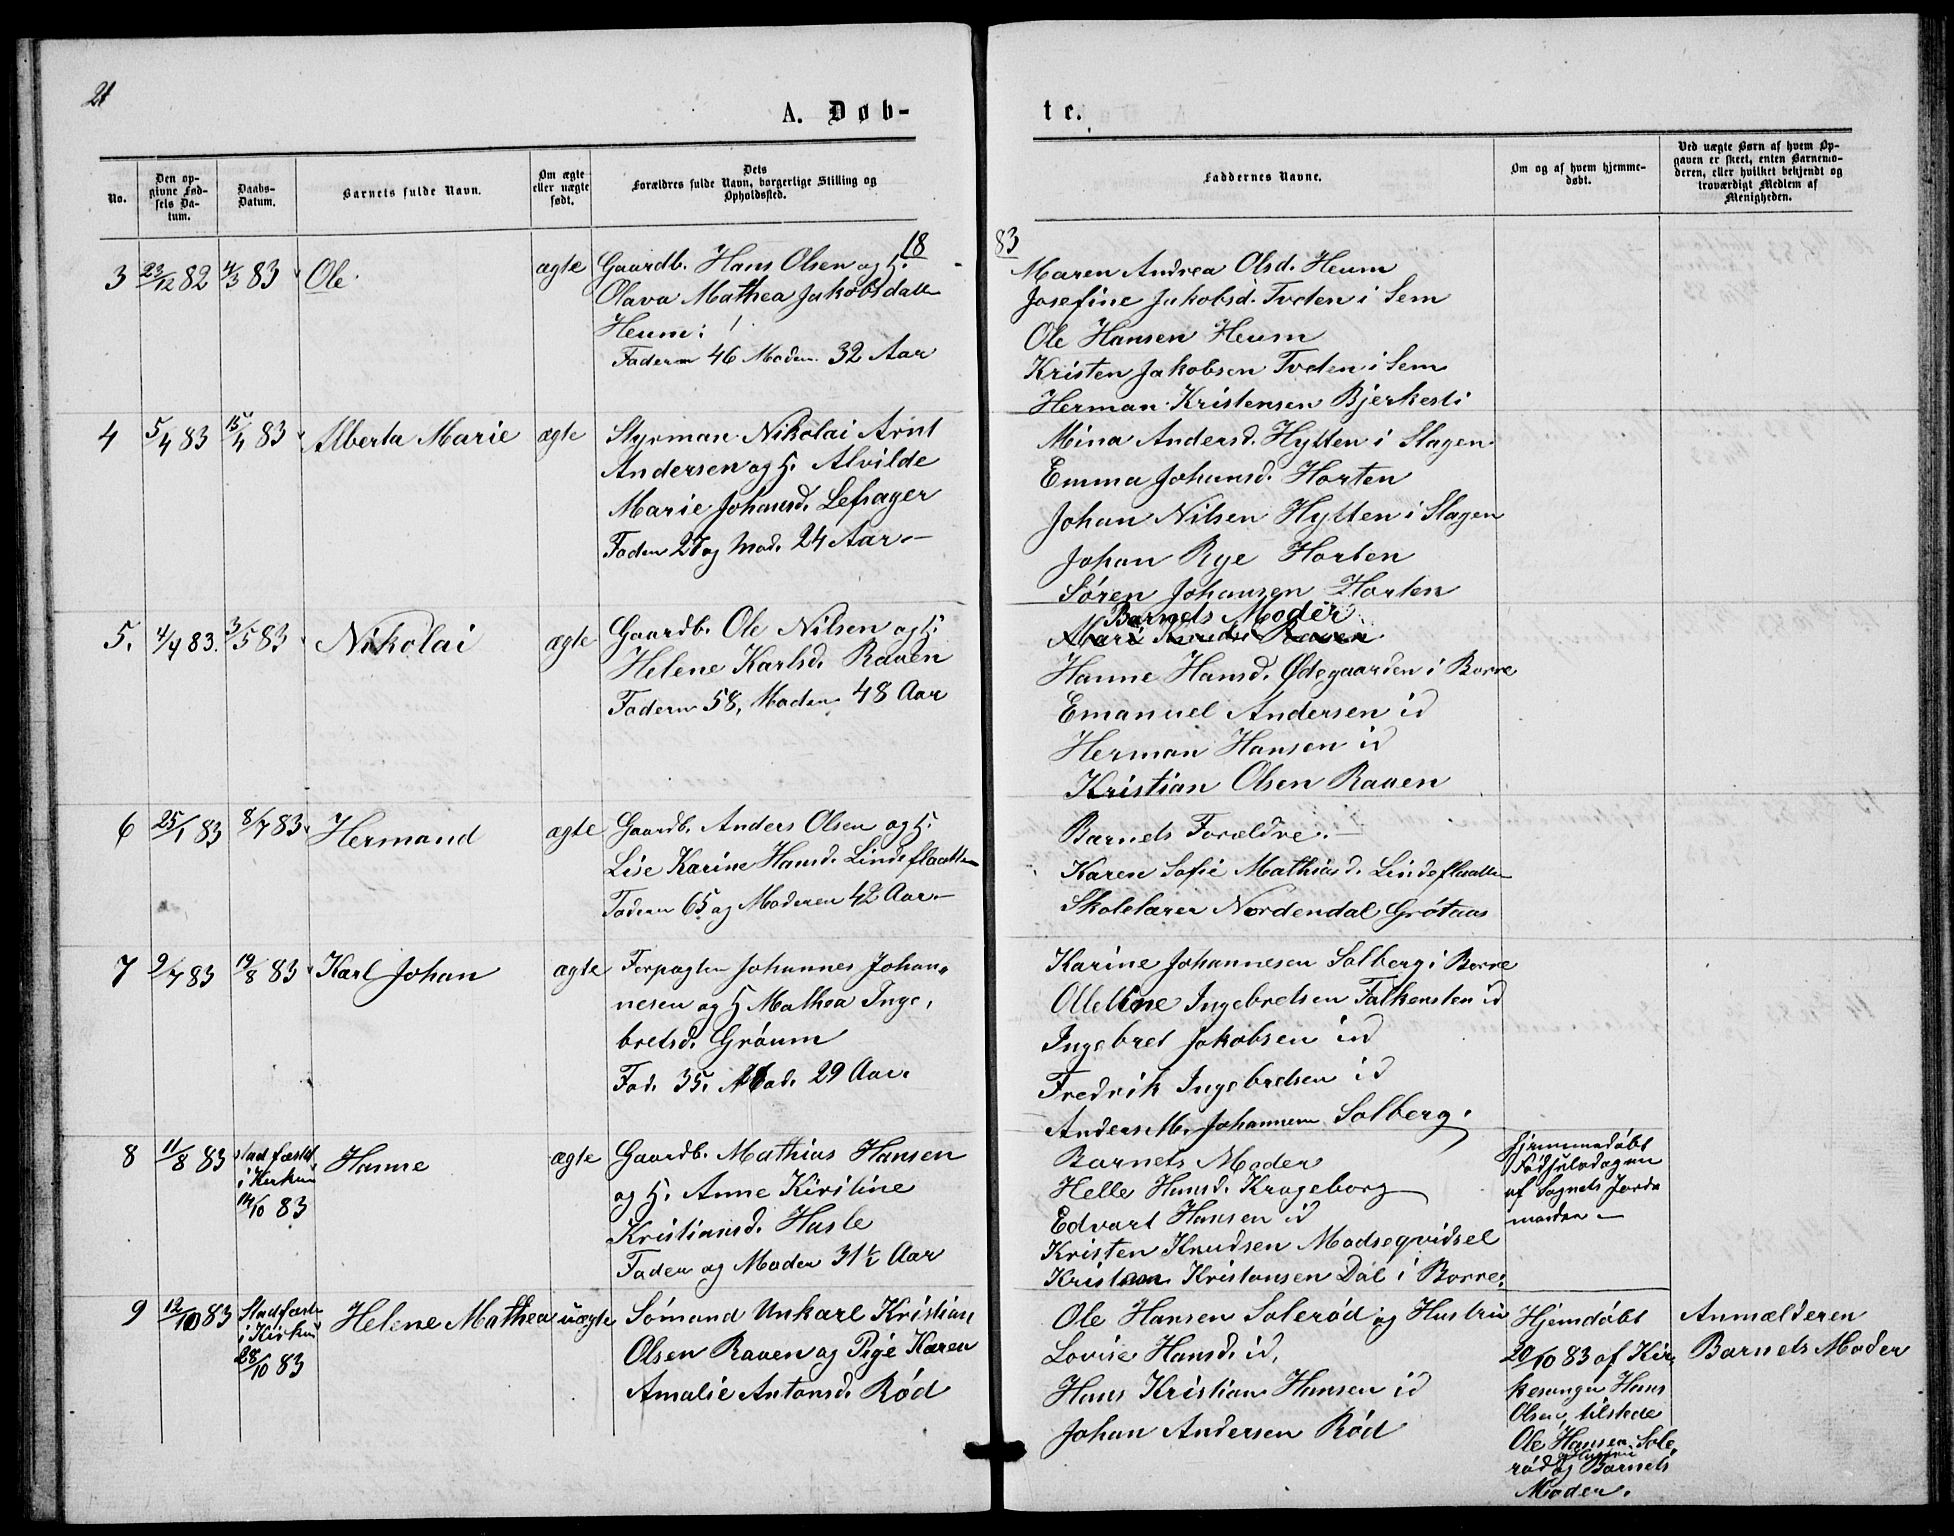 21
A. Døb-
te.
No.
Den op-
givne Fød-
sels Da-
tum.
Daabs-
Datum.
Barnets fulde Navn.
Om ægte
eller uægte
født.
Dets
Forældres fulde Navn, borgerlige Stilling og
Opholdssted.
Faddernes Navne.
Om og af hvem hjemme-
døbt.
Ved uægte Børn af hvem Op-
gaven er skeet, enten Barnemo-
deren, eller hvilket bekjendt og
troværdigt Medlem af
Menigheden.
18
83
3 23/12 82 4/3 83 Ole ægte Gaardb. Hans Olsen og H.
Olava Mathea Jakobsdatter
Heum:
Faderen 46 Moderen 32 Aar
Maren Andrea Olsd. Heum
Josefine Jakobsd. Tveten i Sem
Ole Hansen Heum
Kristen Jakobsen Tveten i Sem
Herman Kristensen Bjerkesti
4 5/4 83 15/4 83 Alberta Marie ægte Styrman Nikolai Arnt
Andersen og H. Alvilde
Marie Johansd. Lefsager
Faderen 27 og Mod. 24 Aar.—
Mina Andersd. Hytten i Slagen
Emma Johansd. Horten
Johan Nilsen Hytten i Slagen
Johan Rye Horten
Søren Johansen Horten
5. 4/4 83. 3/5 83 Nikolai ægte Gaardb. Ole Nilsen og H.
Helene Karlsd. Rauen
Faderen 58, Moderen 48 Aar
Barnets Moder
Hanne Hansd. Ødegaarden i Borre
Emanuel Andersen id
Herman Hansen id
Kristian Olsen Rauen
6 25/1 83 8/7 83 Hermand ægte Gaardb. Anders Olsen og H.
Lise Karine Hansd. Lindeflaatten
Faderen 65 og Moderen 42 Aar.—
Barnets Forældre.—
Karen Sofie Mathiasd. Lindeflaatten
Skolelærer Nordendal Grøtaas
7 9/7 83 19/8 83 Karl Johan ægte Forpagter Johannes Johan-
nesen og H Mathea Inge,
bretsd. Grøum
Fad. 35. Mod. 29 Aar.
Karine Johannesen Solberg i Borre
Olleline Ingebretsen Falkensten id
Ingebret Jakobsen id
Fredrik Ingebretsen id
Anders M. Johannesen Solberg.
8 11/8 83 Stadfæstet
i Kirken
14/10 83
Hanne ægte Gaardb. Mathias Hansen
og H. Anne Kirstine
Kristiansd. Hasle
Fader og Moder 31½ Aar
Barnets Moder
Helle Hansd. Krageborg
Edvart Hansen id
Kristen Knudsen Madseqvidsel
Kristian Kristansen Dal i Borre.
Hjemmedøbt
Fødselsdagen
af Sognets Jorde
moder.—
9 12/10 83 Stadfæstet
i Kirken
28/10 83
Helene Mathea uægte Sømand Unkarl Kristian
Olsen Rauen og Pige Karen
Amalie Antonsd. Rød
Ole Hansen Solerød og Hustru
Lovise Hansd. id.
Hans Kristian Hansen id
Johan Andersen Rød
Hjemdøbt
20/10 83 af Kir-
kesanger Hans
Olsen, tilstede
Ole Hansen Sole
rød og Hustru
og Barnets
Moder.
Anmælderen
Barnets Moder